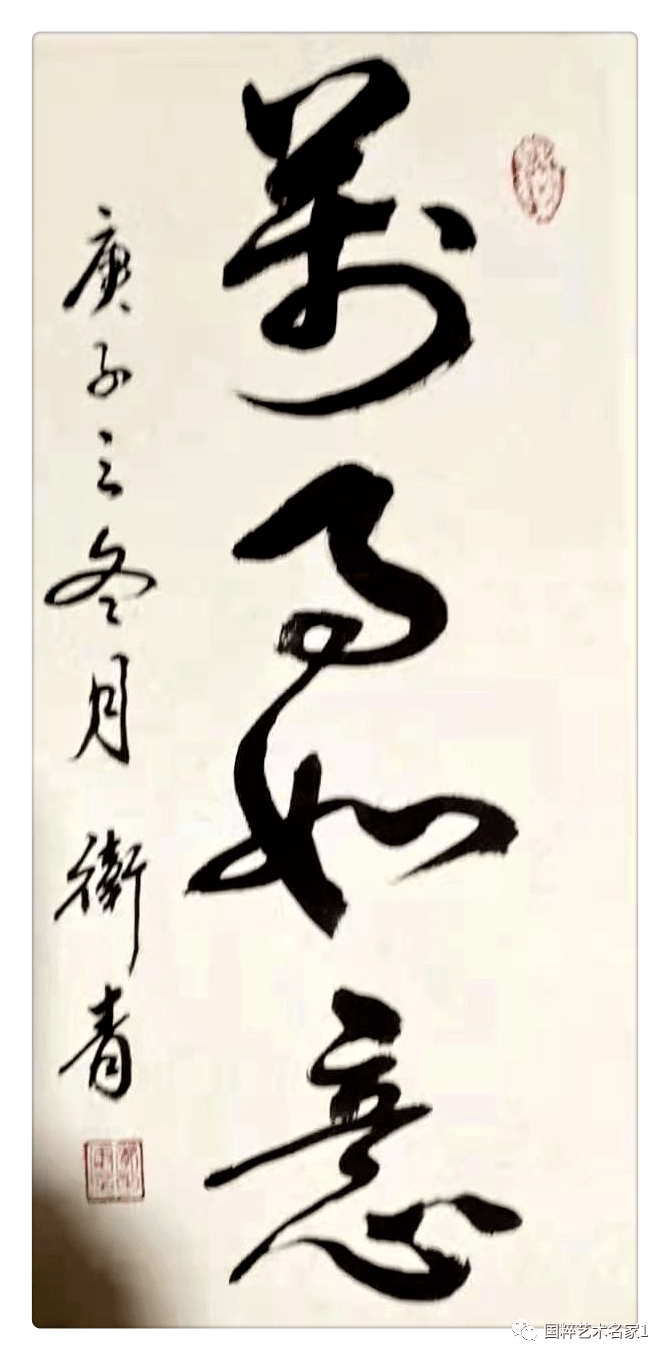 萬事如意
庚子之冬月 衛青
国粹艺术名家1